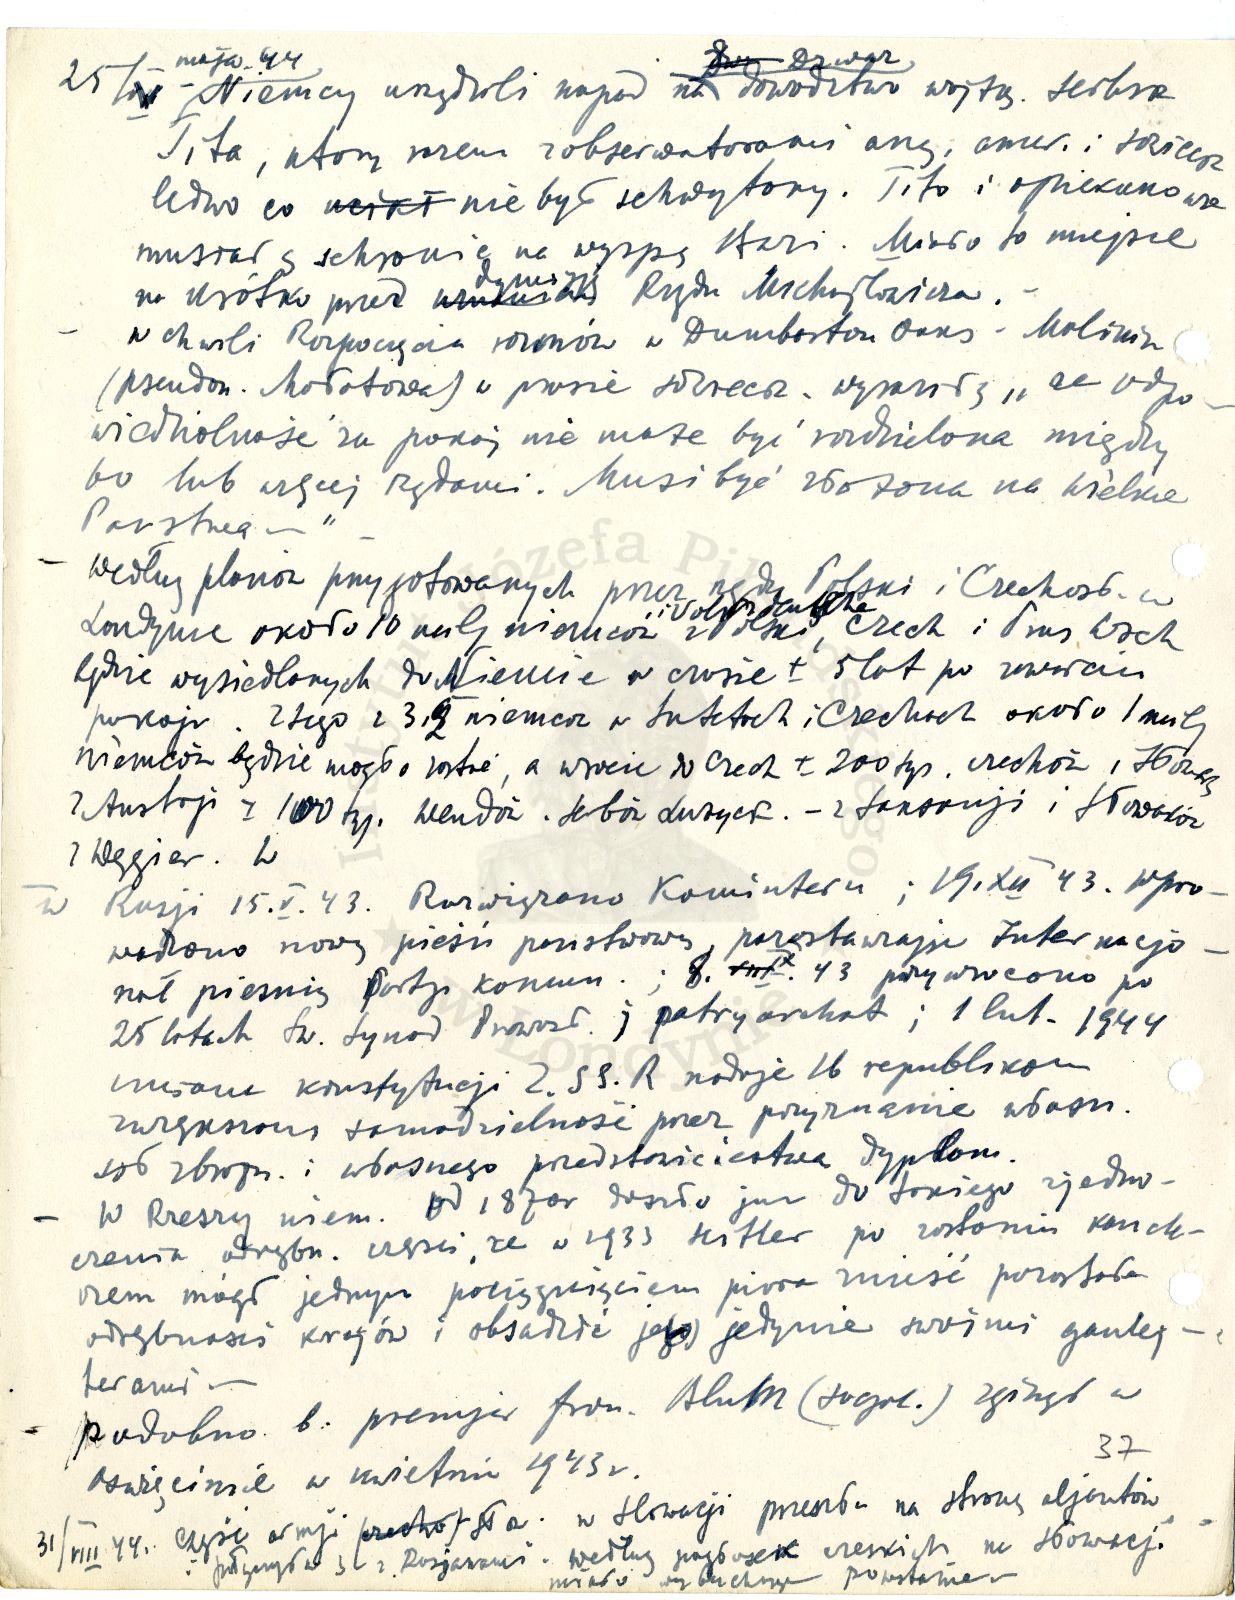 25/V maja 44
- Niemcy urządzili napad na Drwar dowództwo wojsk. serbsk
Tita, który razem z obserwatorami ang, amer. i sowieck
ledwo co ucikł nie był schwytany. Tito i opiekunowie
musiał ą schronić na wyspę Hari. Miało to miejsce
na krótko przed dymisją Rządu Michajłowicza. -
- w chwili Rozpoczęcia rozmów w Dumbarton Oaks - Malinin
(pseudon. Mołotowa) w prasie sowieck. wyraził ą „ że odpo-
wiedzialność za pokój nie może być rozdzielona między
60 lub więcej rządami. Musi być złożona na Wielkie
Państwa - " -
- według planów przygotowanych przez rządy Polski i Czechosł. w
Londynie około 10 milj niemców i Volksdeutsche z Polski, Czech i Prus Wsch
będzie wysiedlonych do Niemiec w czasie ± 5 lat po zawarciu
pokoju. Z tego z 3,2 niemców w Sudetach i Czechach około 1 milj
niemców będzie mogło zostać, a wróci do Czech ± 200 tys. czechów i Słowaków
z Austrji z 100 tys. Wendów. Serbów Łużyck. - z Saksonji i Słowaków
z Węgier. W
- w Rosji 15.V.43. Rozwiązano Komintern ; 19.XII 43. Wpro-
wadzono nową pieśń państwową, pozostawiając Internacjo-
nał pieśnią Partji komun. ; 8. IX. 43 przywrócono po
25 latach Św. Synod Prawosł. i patryarchat ; 1 lut. 1944
zmiana konstytucji Z.SS.R nadaje 16 republikom
zwiększoną samodzielność przez przyznanie własn.
sił zbrojn. i własnego przedstawicielstwa dyplom.
- W Rzeszy niem. od 1870r doszło już do takiego zjedno-
czenia odrębn. części, że w 1933 Hitler po zostaniu kancle-
rzem mógł jednym pociągnięciem pióra znieść pozostałe
odrębności krajów i obsadzić je jedynie swoimi gaulei-
terami -
- podobno b. premjer fran. Blum (socjal.) zginął w
Oświęcimie w kwietniu 1943r.
37
31/VIII 44. Część armji czecho sł a. w Słowacji przeszła na stronę aljantów
i połączyła ś z Rosjanami. według pogłosek czeskich na Słowacji
miało wybuchnąć powstanie -